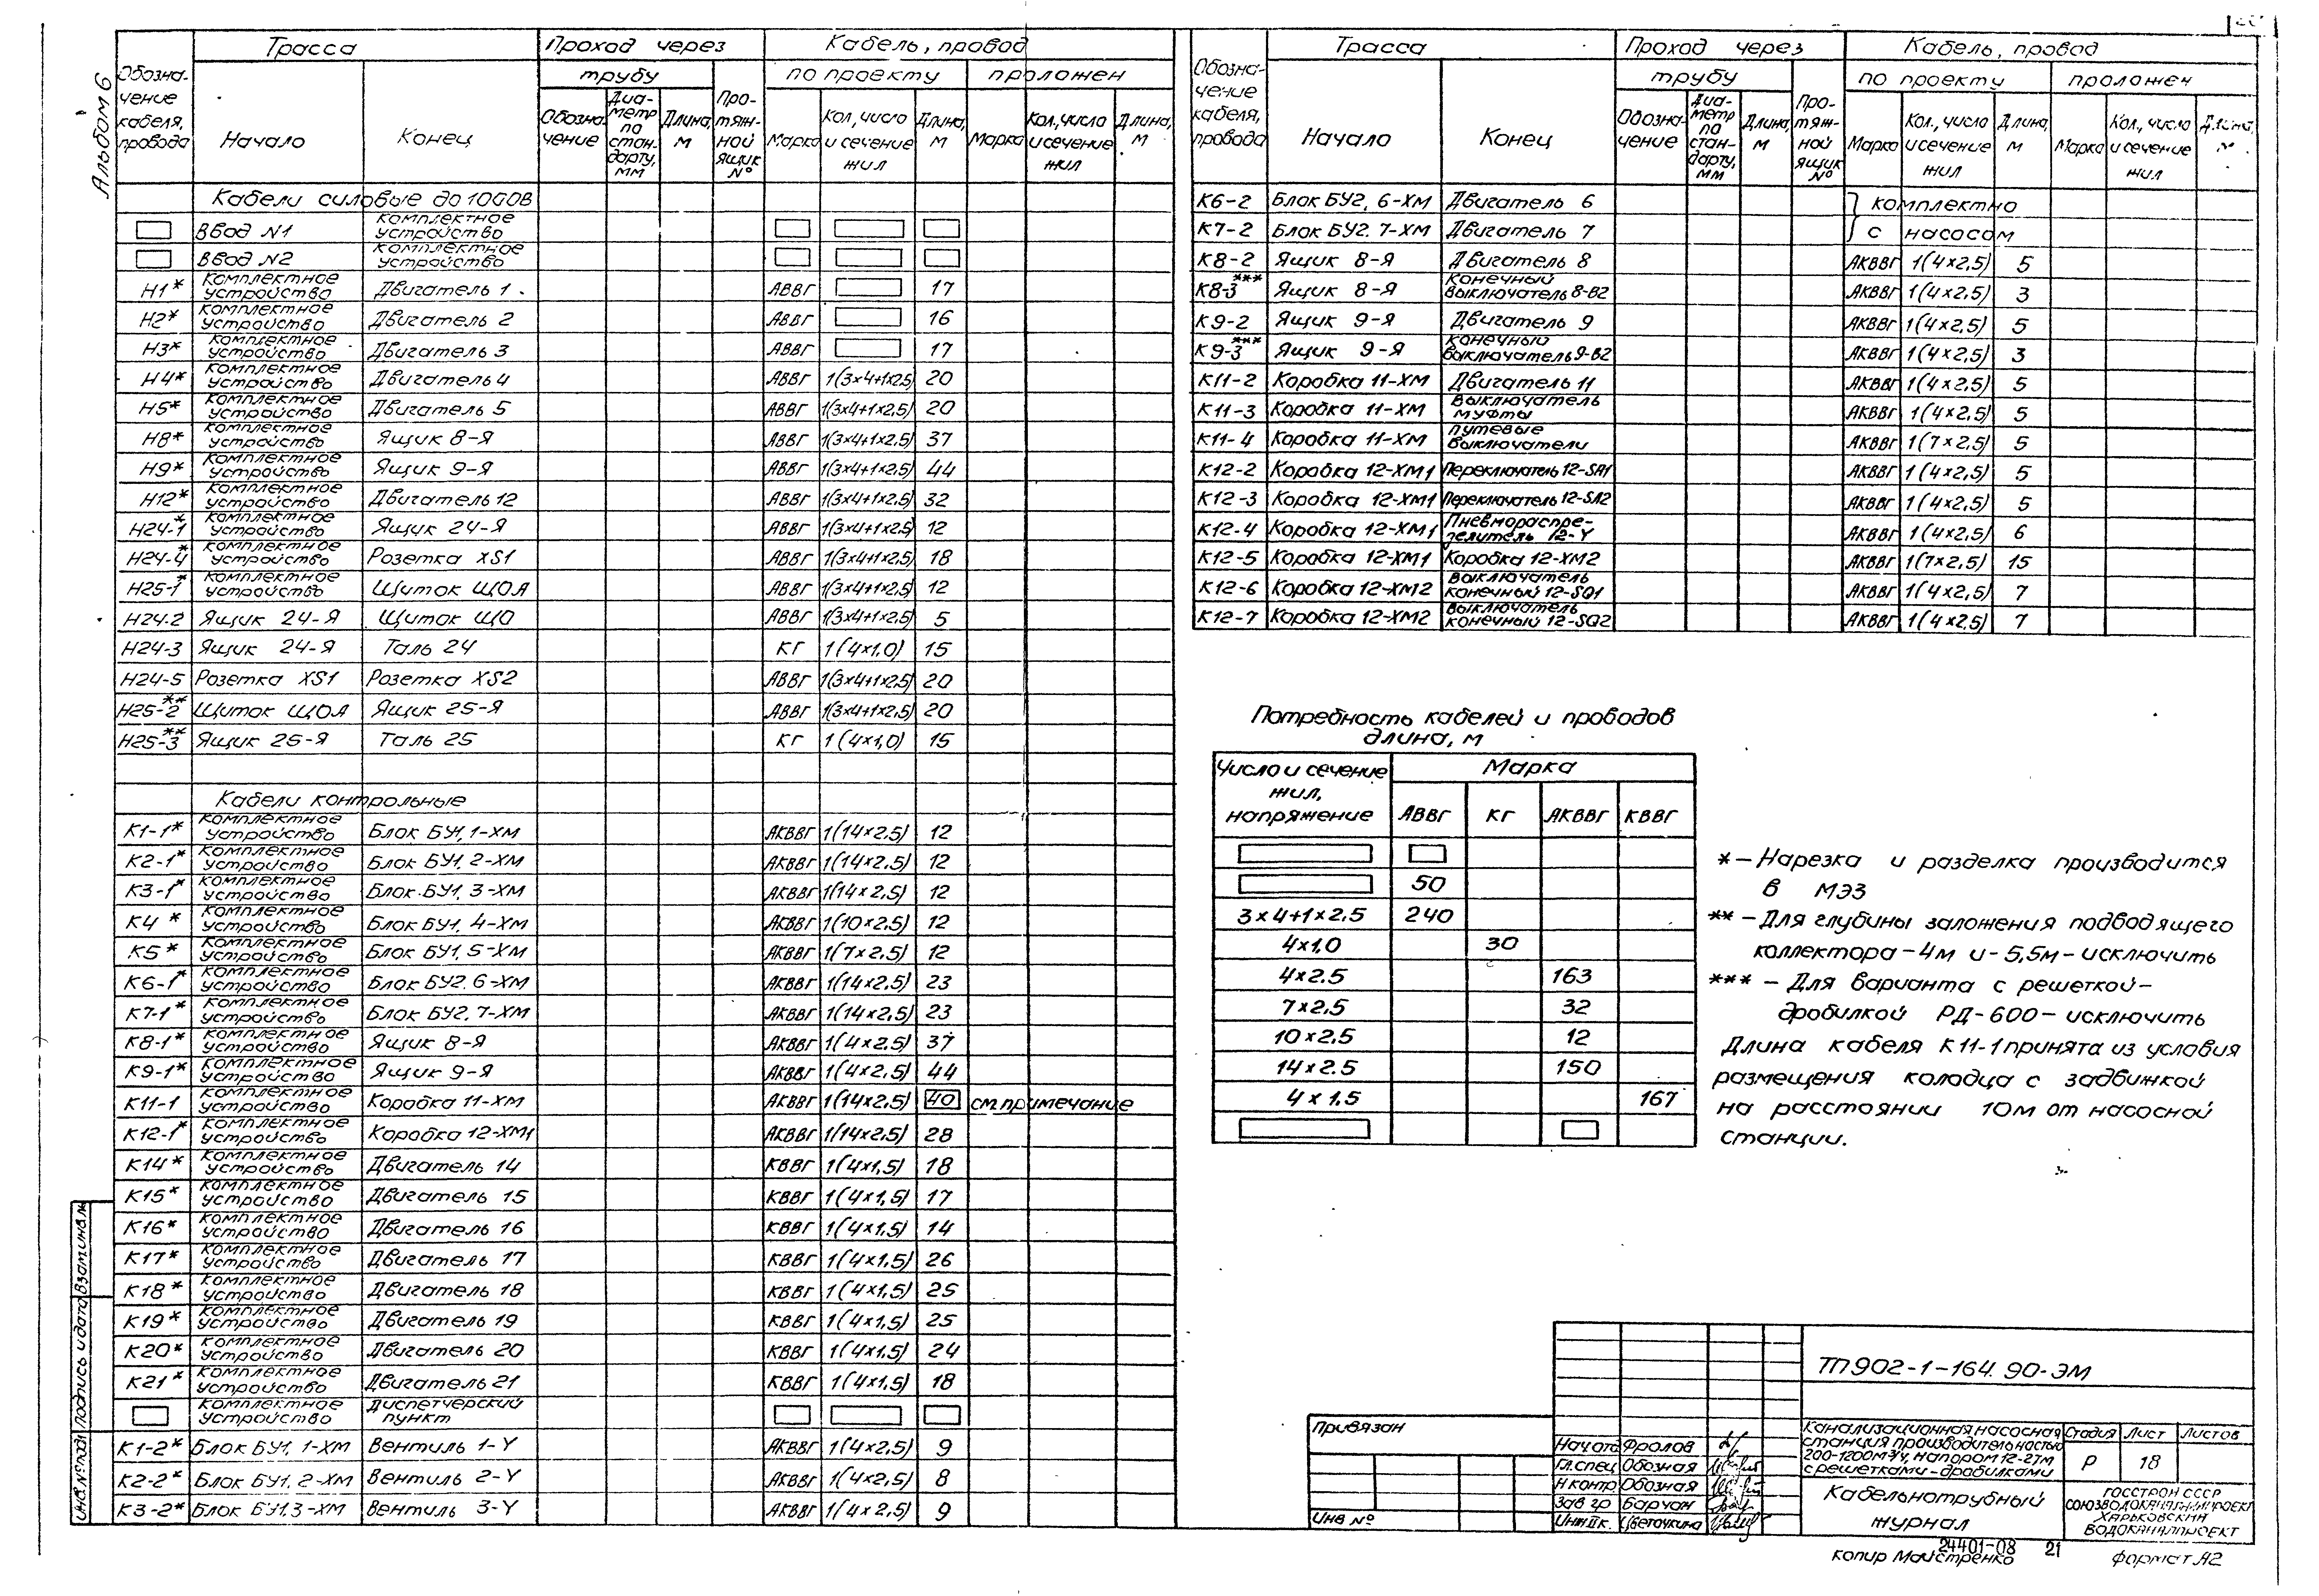 Альбом 6
Обозначение кабеля, провода | Трасса | Проход через | Кабель, провод
трубу | Протяжной ящик № | по проекту | проложен
Начало | Конец | Обозначение | Диаметр по стандарту, мм | Длина, м | Марка | Кол., число и сечение жил | Длина, м | Марка | Кол., число и сечение жил | Длина, м
Кабели силовые до 1000В
Ввод N1 | Комплектное устройство
Ввод N2 | Комплектное устройство
Н1* | Комплектное устройство | Двигатель 1 | АВВГ | 17
Н2* | Комплектное устройство | Двигатель 2 | АВВГ | 16
Н3* | Комплектное устройство | Двигатель 3 | АВВГ | 17
Н4* | Комплектное устройство | Двигатель 4 | АВВГ | 1(3×4+1×2,5) | 20
Н5* | Комплектное устройство | Двигатель 5 | АВВГ | 1(3×4+1×2,5) | 20
Н8* | Комплектное устройство | Ящик 8-Я | АВВГ | 1(3×4+1×2,5) | 37
Н9* | Комплектное устройство | Ящик 9-Я | АВВГ | 1(3×4+1×2,5) | 44
Н12* | Комплектное устройство | Двигатель 12 | АВВГ | 1(3×4+1×2,5) | 32
Н24-1* | Комплектное устройство | Ящик 24-Я | АВВГ | 1(3×4+1×2,5) | 12
Н24-4* | Комплектное устройство | Розетка XS1 | АВВГ | 1(3×4+1×2,5) | 18
Н25-1* | Комплектное устройство | Щиток ЩОА | АВВГ | 1(3×4+1×2,5) | 12
Н24-2 | Ящик 24-Я | Щиток ЩО | АВВГ | 1(3×4+1×2,5) | 5
Н24-3 | Ящик 24-Я | Таль 24 | КГ | 1(4×1,0) | 15
Н24-5 | Розетка XS1 | Розетка XS2 | АВВГ | 1(3×4+1×2,5) | 20
Н25-2** | Щиток ЩОА | Ящик 25-Я | АВВГ | 1(3×4+1×2,5) | 20
Н25-3** | Ящик 25-Я | Таль 25 | КГ | 1(4×1,0) | 15
Кабели контрольные
К1-1* | Комплектное устройство | Блок БУ1, 1-ХМ | АКВВГ | 1(14×2,5) | 12
К2-1* | Комплектное устройство | Блок БУ1, 2-ХМ | АКВВГ | 1(14×2,5) | 12
К3-1* | Комплектное устройство | Блок БУ1, 3-ХМ | АКВВГ | 1(14×2,5) | 12
К4* | Комплектное устройство | Блок БУ1, 4-ХМ | АКВВГ | 1(10×2,5) | 12
К5* | Комплектное устройство | Блок БУ1, 5-ХМ | АКВВГ | 1(7×2,5) | 12
К6-1* | Комплектное устройство | Блок БУ2, 6-ХМ | АКВВГ | 1(14×2,5) | 23
К7-1* | Комплектное устройство | Блок БУ2, 7-ХМ | АКВВГ | 1(14×2,5) | 23
К8-1* | Комплектное устройство | Ящик 8-Я | АКВВГ | 1(4×2,5) | 37
К9-1* | Комплектное устройство | Ящик 9-Я | АКВВГ | 1(4×2,5) | 44
К11-1 | Комплектное устройство | Коробка 11-ХМ | АКВВГ | 1(14×2,5) | 40 | см. примечание
К12-1* | Комплектное устройство | Коробка 12-ХМ1 | АКВВГ | 1(14×2,5) | 28
К14* | Комплектное устройство | Двигатель 14 | КВВГ | 1(4×1,5) | 18
К15* | Комплектное устройство | Двигатель 15 | КВВГ | 1(4×1,5) | 17
К16* | Комплектное устройство | Двигатель 16 | КВВГ | 1(4×1,5) | 14
К17* | Комплектное устройство | Двигатель 17 | КВВГ | 1(4×1,5) | 26
К18* | Комплектное устройство | Двигатель 18 | КВВГ | 1(4×1,5) | 25
К19* | Комплектное устройство | Двигатель 19 | КВВГ | 1(4×1,5) | 25
К20* | Комплектное устройство | Двигатель 20 | КВВГ | 1(4×1,5) | 24
К21* | Комплектное устройство | Двигатель 21 | КВВГ | 1(4×1,5) | 18
Комплектное устройство | Диспетчерский пункт
К1-2* | Блок БУ1, 1-ХМ | Вентиль 1-Y | АКВВГ | 1(4×2,5) | 9
К2-2* | Блок БУ1, 2-ХМ | Вентиль 2-Y | АКВВГ | 1(4×2,5) | 8
К3-2* | Блок БУ1, 3-ХМ | Вентиль 3-Y | АКВВГ | 1(4×2,5) | 9
Обозначение кабеля, провода | Трасса | Проход через | Кабель, провод
трубу | Протяжной ящик № | по проекту | проложен
Начало | Конец | Обозначение | Диаметр по стандарту, мм | Длина, м | Марка | Кол., число и сечение жил | Длина, м | Марка | Кол., число и сечение жил | Длина, м
К6-2 | Блок БУ2, 6-ХМ | Двигатель 6 | комплектно
К7-2 | Блок БУ2, 7-ХМ | Двигатель 7 | с насосом
К8-2 | Ящик 8-Я | Двигатель 8 | АКВВГ | 1(4×2,5) | 5
К8-3*** | Ящик 8-Я | Конечный выключатель 8-В2 | АКВВГ | 1(4×2,5) | 3
К9-2 | Ящик 9-Я | Двигатель 9 | АКВВГ | 1(4×2,5) | 5
К9-3*** | Ящик 9-Я | Конечный выключатель 9-В2 | АКВВГ | 1(4×2,5) | 3
К11-2 | Коробка 11-ХМ | Двигатель 11 | АКВВГ | 1(4×2,5) | 5
К11-3 | Коробка 11-ХМ | Выключатель муфты | АКВВГ | 1(4×2,5) | 5
К11-4 | Коробка 11-ХМ | Путевые выключатели | АКВВГ | 1(7×2,5) | 5
К12-2 | Коробка 12-ХМ1 | Переключатель 12-SA1 | АКВВГ | 1(4×2,5) | 5
К12-3 | Коробка 12-ХМ1 | Переключатель 12-SA2 | АКВВГ | 1(4×2,5) | 5
К12-4 | Коробка 12-ХМ1 | Пневмораспределитель 12-Y | АКВВГ | 1(4×2,5) | 6
К12-5 | Коробка 12-ХМ1 | Коробка 12-ХМ2 | АКВВГ | 1(7×2,5) | 15
К12-6 | Коробка 12-ХМ2 | Выключатель конечный 12-SQ1 | АКВВГ | 1(4×2,5) | 7
К12-7 | Коробка 12-ХМ2 | Выключатель конечный 12-SQ2 | АКВВГ | 1(4×2,5) | 7
Потребность кабелей и проводов
длина, м
Число и сечение жил, напряжение | Марка
АВВГ | КГ | АКВВГ | КВВГ
50
3×4+1×2,5 | 240
4×1,0 | 30
4×2.5 | 163
7×2,5 | 32
10×2.5 | 12
14×2.5 | 150
4×1.5 | 167
* – Нарезка и разделка производится
в МЭЗ
** – Для глубины заложения подводящего
коллектора – 4м и – 5,5м – исключить
*** – Для варианта с решеткой-
дробилкой РД-600 – исключить
Длина кабеля К11-1 принята из условия
размещения колодца с задвижкой
на расстоянии 10м от насосной
станции.
ТП902-1-164.90-ЭМ
Привязан
Инв №
Нач отд Фролов
Гл. спец Обозная
Н контр Обозная
Зав гр Барчан
Инж.IIк. Цветочкина
Канализационная насосная
станция производительностью
200-1200м3/ч, напором 12-27м
с решетками-дробилками
Стадия | Лист | Листов
Р | 18
Кабельнотрубный
журнал
ГОССТРОЙ СССР
СОЮЗВОДОКАНАЛНИИПРОЕКТ
ХАРЬКОВСКИЙ
ВОДОКАНАЛПРОЕКТ
24401-08 21
копир Майстренко
формат А2
Инв. № подл | Подпись и дата | Взам. инв. №